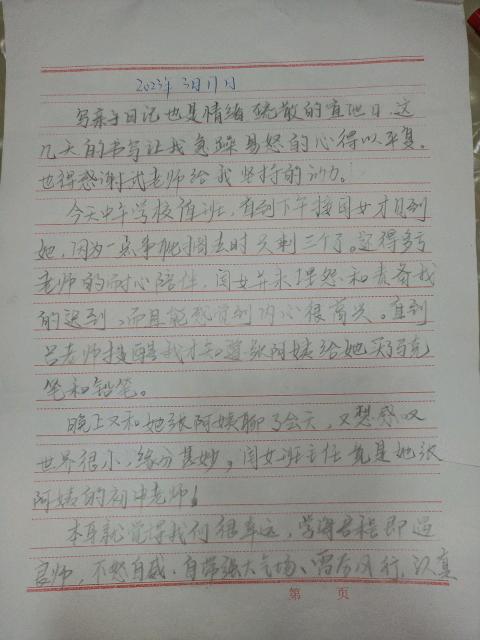 2023年3月17日
写亲子日记也是情绪疏散的宣地日,这
几天的书写让我急躁易怒的心得以平复。
也得感谢武老师给我坚持的动力。
今天中午学校值班,直到下午接闺女才见到
她,因为一点事耽搁去时只剩三个了。还得多亏
老师的耐心陪伴,闺女并未埋怨和责备我
的迟到,而且能感觉到内心很高兴。直到
吕老师提醒我才知道张阿姨给她买了
笔和铅笔。
晚上又和她张阿姨聊了会天,又想感叹
世界很小,缘分甚妙,闺女班主任竟是她张
阿姨的初中老师!
本身就觉得我们很幸运,学海启程即遇
良师,不怒自威、自带强大气场、雷厉风行,认真
第 页